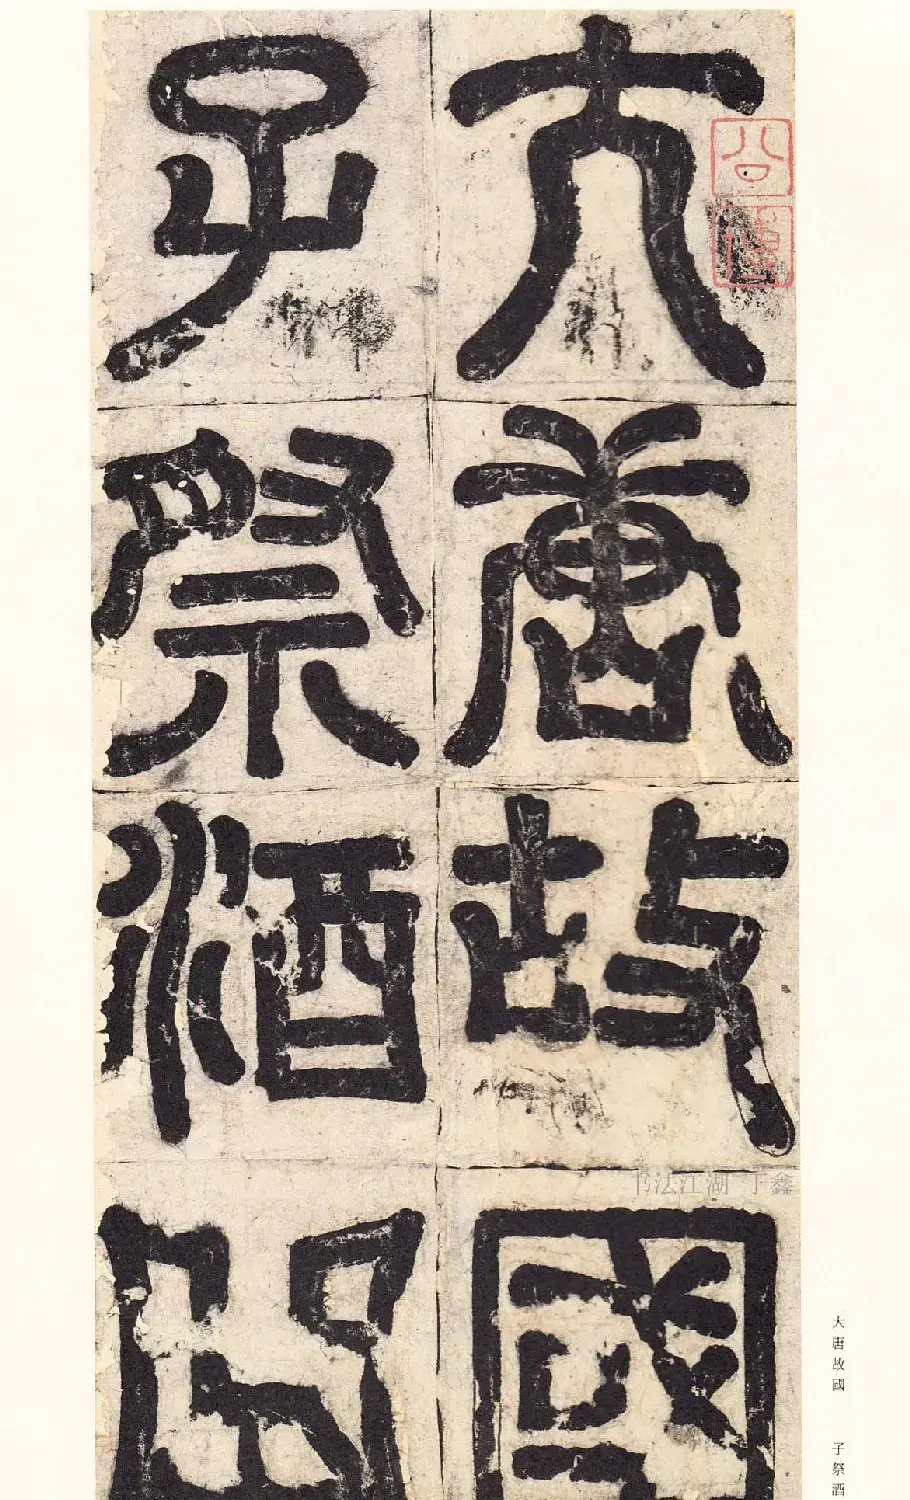 大唐故國
子祭酒
书法江湖
大唐故國 子祭酒